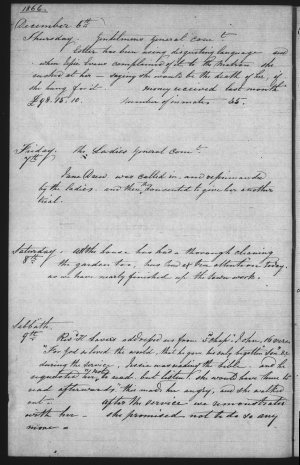 1866
December 6th
Thursday. Gentlemens General Comt
Esther has been using disgusting language and
when Mrs complained of it to the Matron she
rushed at her - saying she would be the death of her, if
she hung for it. money received last month
£98.15.10. number of inmates 55.
Friday. The Ladies General Comt
7th Jane was called in and reprimanded
by the ladies. and then consented to give her another
trial.
Saturday. All the house has had a thorough cleaning
8th the garden too, has had attention today,
as we have nearly finished up the town work.
Sabbath
9th Revd H. addressed us from 3 Chapr John, 16 verse
"For God so loved the world, that he gave his only begotten Son &c
during the service, was reading the bible. and he
requested her, "not to read, but listen, she would have time to
read afterwards," this made her angry, and she walked
out - after the service we remonstrated
with her - she promised not to do so any
more -